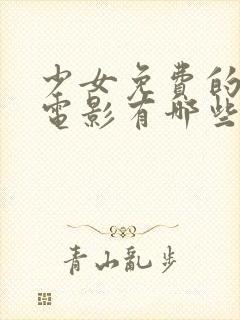 少女免费的
电影有哪些
青山乱步